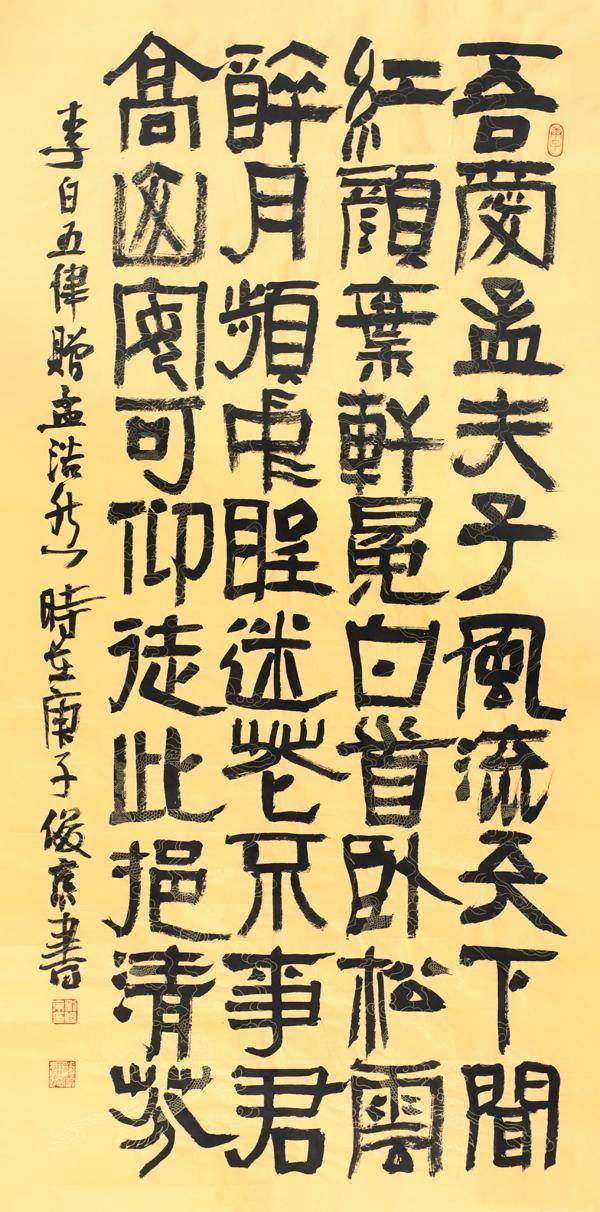 吾愛孟夫子風流天下聞
紅顏棄軒冕白首卧松雲
醉月頻中聖迷花不事君
高山安可仰徒此挹清芬
李白五律贈孟浩然 時在庚子俊彥書